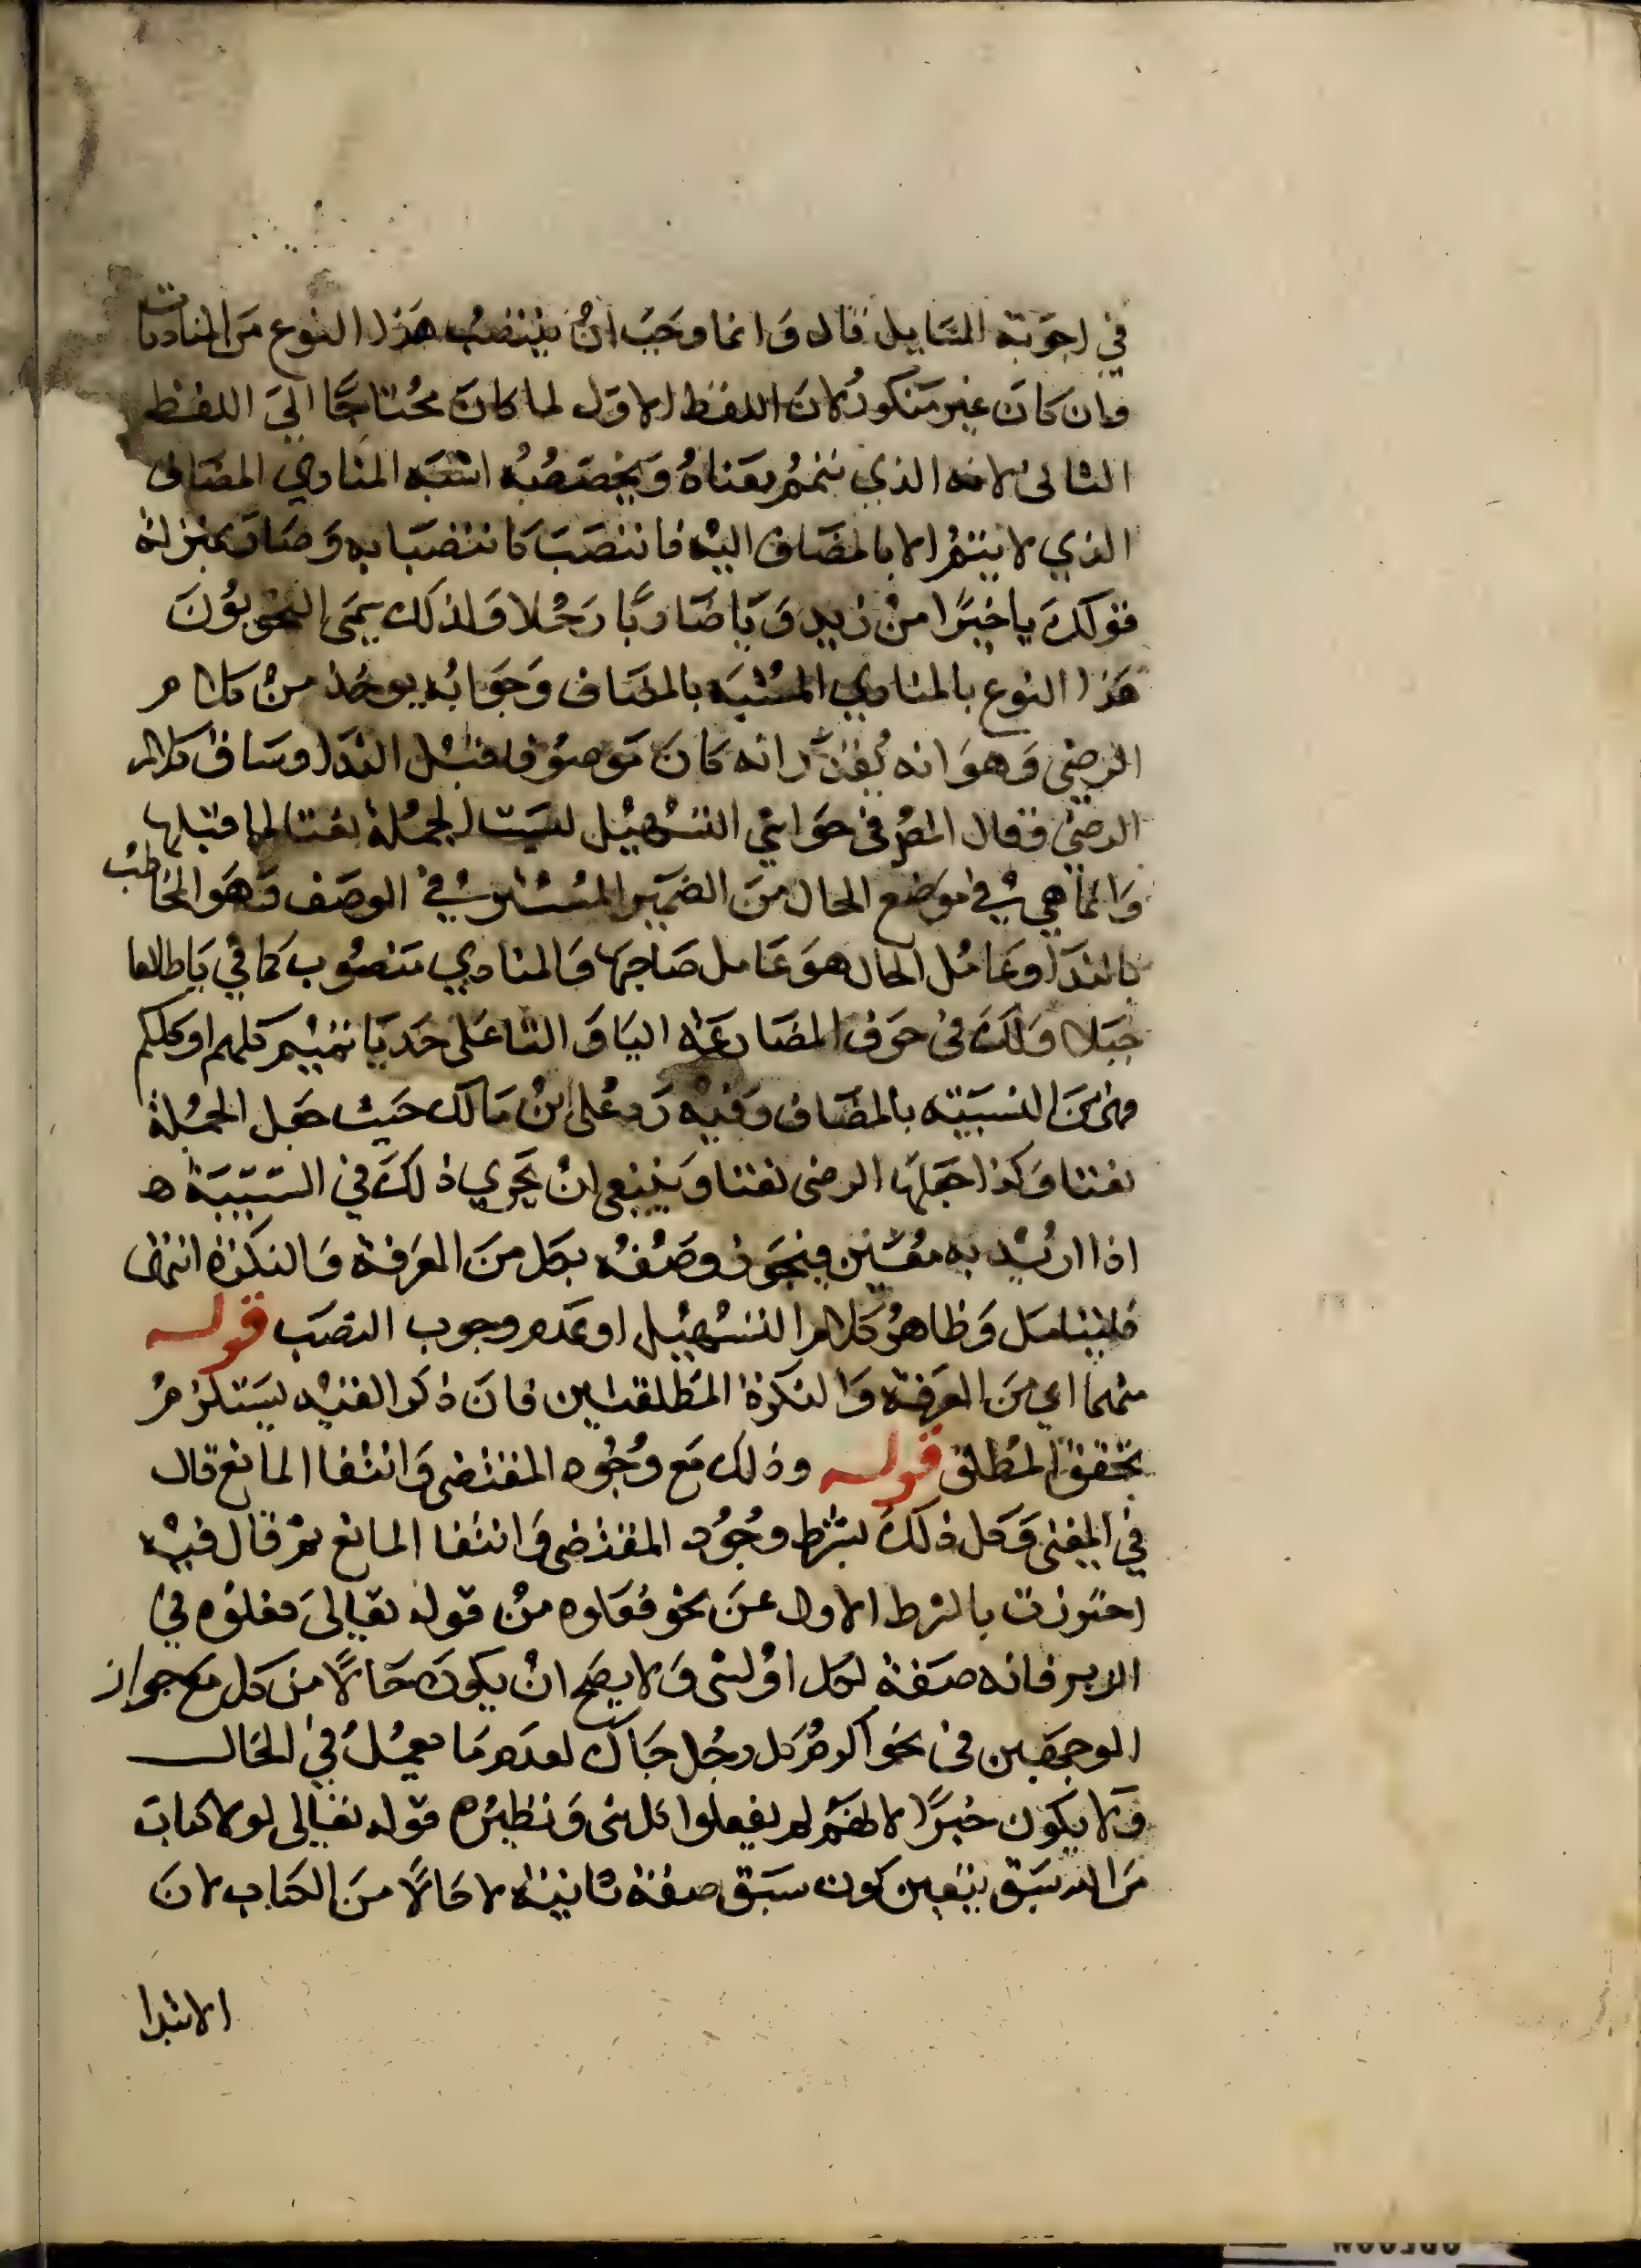 في اجوبة المسايل قال وَانما وجَبَ انْ ينتصبُ هَذا النوع مَن المنادیات
وان كانَ غير مَنكور لانَ اللفظ الاوّل لما كان محُتاجًا اليَ اللفظ
الثانى لانه الذي يتمم معَناهُ وَيخصّصُه اشبَه المنَادي المضَاف
الذي لا يتم الا بالمضَاف اليْه فانتصَبَ كانتصَابه وَصَار بمنزلة
قولكَ ياخيرًا منْ زيد وَيا ضَاربًا رَجُلا وَلذلك يسَمي النحويُونَ
هَذا النوع بالمنادي المشُبَه بالمضَاف وَجَوَابُه يوخذ منْ كلام
الرضى وَهوَ انه يُقدّر انه كَانَ مَوصوُفا قبْل الندَا وسَاق كلام
الرضىْ فقال المصْ فى حوَاشي التسْهيْل ليسَت الجمُلة نعتا لما قبلها
وَانما هي في موَضع الحال منَ الضمَير المسُتتر في الوصَف وَهوَ المخاطبُ
بالندَا وعَامُل الحال هوَ عَامل صَاحبهَا وَالمنادي منَصُوب كما في يَا طالعا
جَبَلا وَلكَ فى حرَف المضَارعَة اليَا وَالتا عَلى حَد يَا تميْم كلهم او كلكم
وهىَ منَ الشبيْه بالمضَاف وفيْه رَد عُلى ابنْ مَالك حَيث جعَل الجمُلة
نعتا وَكذا جعَلهَا الرضى نعَتا وَينبغى انْ يَجري ذلكَ في السَببيَة ه
اذا اريْد به معُيّن فيجَوز وصَفُه بكل منَ المعَرفة وَالنكرَة انتهى
فليتامَل وَظاهرُ كلام التسْهيْل او عَدم وجوب النصَب قوله
منهما اي منَ المعرَفة وَالنكرَة المطلقتين فانَ ذكر القيْد يسَتلزمُ
تحقق المُطلق قوله وذلك مَع وُجُود المقتضى وَانتفا المانع قال
في المغنى وَكل ذلكَ بشرْط وجُوُد المقتضى وَانتفا المانع ثم قال فيْه
احتَرزت بالشرط الاول عنَ نحو فعَلوه منْ قوله تعَاليَ فعلوُه فى
الزبر فانه صفَة لكل اوْ لشى وَلا يصَح انْ يكونَ حَالًا منَ كل معَ جواز
الوجهَين فى نحوَ اكرمْ كل رجُل جَاك لعدَم مَا يعمُلُ في الحَال
وَلا يكون خبرًا لانهَم لم يفعلوا كل شى وَنظيرُه قوله تعَالى لولا كتابَ
مَن الله سَبَق يتعين كون سبَق صفة ثانية لا حَالًا منَ الكتاب لانَ
الابتدا